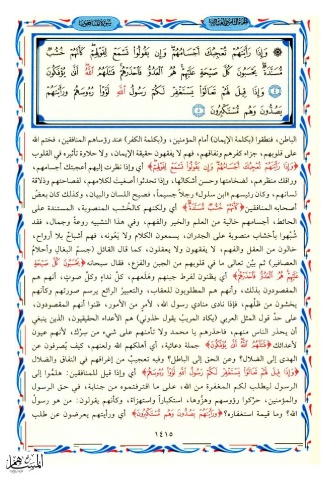 وَإِذَا رَأَيْتَهُمْ تُعْجِبُكَ أَجْسَامُهُمْ وَإِن يَقُولُوا تَسْمَعْ لِقَوْلِهِمْ كَأَنَّهُمْ خُشُبٌ
مُّسَنَّدَةٌ يَحْسَبُونَ كُلَّ صَيْحَةٍ عَلَيْهِمْ هُمُ الْعَدُوُّ فَاحْذَرْهُمْ قَاتَلَهُمُ اللَّهُ أَنَّى يُؤْفَكُونَ
٤ وَإِذَا قِيلَ لَهُمْ تَعَالَوْا يَسْتَغْفِرْ لَكُمْ رَسُولُ اللَّهِ لَوَّوْا رُءُوسَهُمْ وَرَأَيْتَهُمْ
يَصُدُّونَ وَهُم مُّسْتَكْبِرُونَ ٥
الباطن، فنطقوا (بكلمة الإيمان) أمام المؤمنين، و(بكلمة الكفر) عند رؤساء المنافقين، فختم الله
على قلوبهم، جزاء كفرهم ونفاقهم، فهم لا يفقهون حقيقة الإيمان، ولا حلاوة تأثيره في القلوب
﴿وَإِذَا رَأَيْتَهُمْ تُعْجِبُكَ أَجْسَامُهُمْ وَإِن يَقُولُوا تَسْمَعْ لِقَوْلِهِمْ﴾ أي وإذا نظرت إليهم أعجبتك أجسامهم،
وراقك منظرهم، لضخامتها وحسن أشكالها، وإذا تحدثوا أصغيت لكلامهم، لفصاحتهم وذلاقة
لسانهم، وكان رئيسهم «ابن سلول» رجلاً جسيماً، فصيح اللسان والبيان، وكذلك كان بعض
أصحابه المنافقين ﴿كَأَنَّهُمْ خُشُبٌ مُّسَنَّدَةٌ﴾ أي ولكنهم كالخُشُب المنصوبة، المستندة على
الحائط، أجسامهم خالية من العلم والخير والفهم، وفي هذا التشبيه روعة وجمال، فقد
شُبِّهوا بأخشاب منصوبة على الجدران، يسمعون الكلام ولا يَعُونه، فهم أشباحٌ بلا أرواح،
خالون من العقل والفهم، لا يفقهون ولا يعقلون، كما قال القائل (جسم البغال وأحلام
العصافير) ثم بيَّن تعالى ما في قلوبهم من الجبن والفزع، فقال سبحانه ﴿يَحْسَبُونَ كُلَّ صَيْحَةٍ
عَلَيْهِمْ هُمُ الْعَدُوُّ فَاحْذَرْهُمْ﴾ أي يظنون لفرط جبنهم وهلعهم، كلَّ نداءٍ وكلَّ صوت، أنهم هم
المقصودون بذلك، وأنهم هم المطلوبون للعقاب، والتعبيرُ الرائع يرسم صورتهم وكأنهم
يخشون من ظلّهم، فإذا نادى منادي رسول الله، لأمرٍ من الأمور، ظنوا أنهم المقصودون،
على حدِّ قول المثل العربي (يكاد المريبُ يقول خذوني) هم الأعداء الحقيقيون، الذين ينبغي
أن يحذر الناس منهم، فاحذرهم يا محمد ولا تأمنهم على شيء من سِرِّك، لأنهم عيون
لأعدائك ﴿قَاتَلَهُمُ اللَّهُ أَنَّى يُؤْفَكُونَ﴾ جملة دعائية، أي أهلكهم الله ولعنهم، كيف يُصرفون عن
الهدى إلى الضلال؟ وعن الحق إلى الباطل؟ وفيه تعجيبٌ من إغراقهم في النفاق والضلال
﴿وَإِذَا قِيلَ لَهُمْ تَعَالَوْا يَسْتَغْفِرْ لَكُمْ رَسُولُ اللَّهِ لَوَّوْا رُءُوسَهُمْ﴾ أي وإذا قيل للمنافقين: هلمّوا إلى
الرسول ليطلب لكم المغفرة من الله، على ما اقترفتموه من جناية، في حق الرسول
والمؤمنين، حرَّكوا رؤوسهم وهزُّوها، استكباراً واستهزاءً، وكأنهم يقولون: من هو رسول
الله؟ وما قيمة استغفاره؟ ﴿وَرَأَيْتَهُمْ يَصُدُّونَ وَهُم مُّسْتَكْبِرُونَ﴾ أي ورأيتهم يعرضون عن طلب
١٤١٥